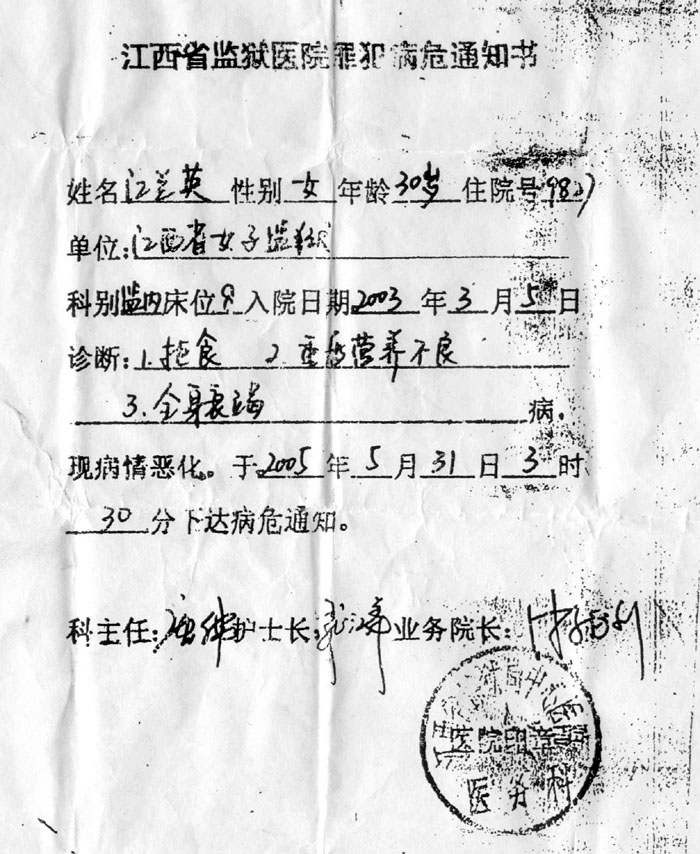 江西省监狱医院罪犯病危通知书
姓名江兰英 性别女年龄30岁 住院号982
单位:江西省女子监狱
科别监内床位8入院日期2003年3月5日
诊断:1.拒食 2.重度营养不良
3.全身衰竭 病,
现病情恶化。于2005年5月31日3时
30分下达病危通知。
科主任: 护士长: 业务院长:
医院
医务科